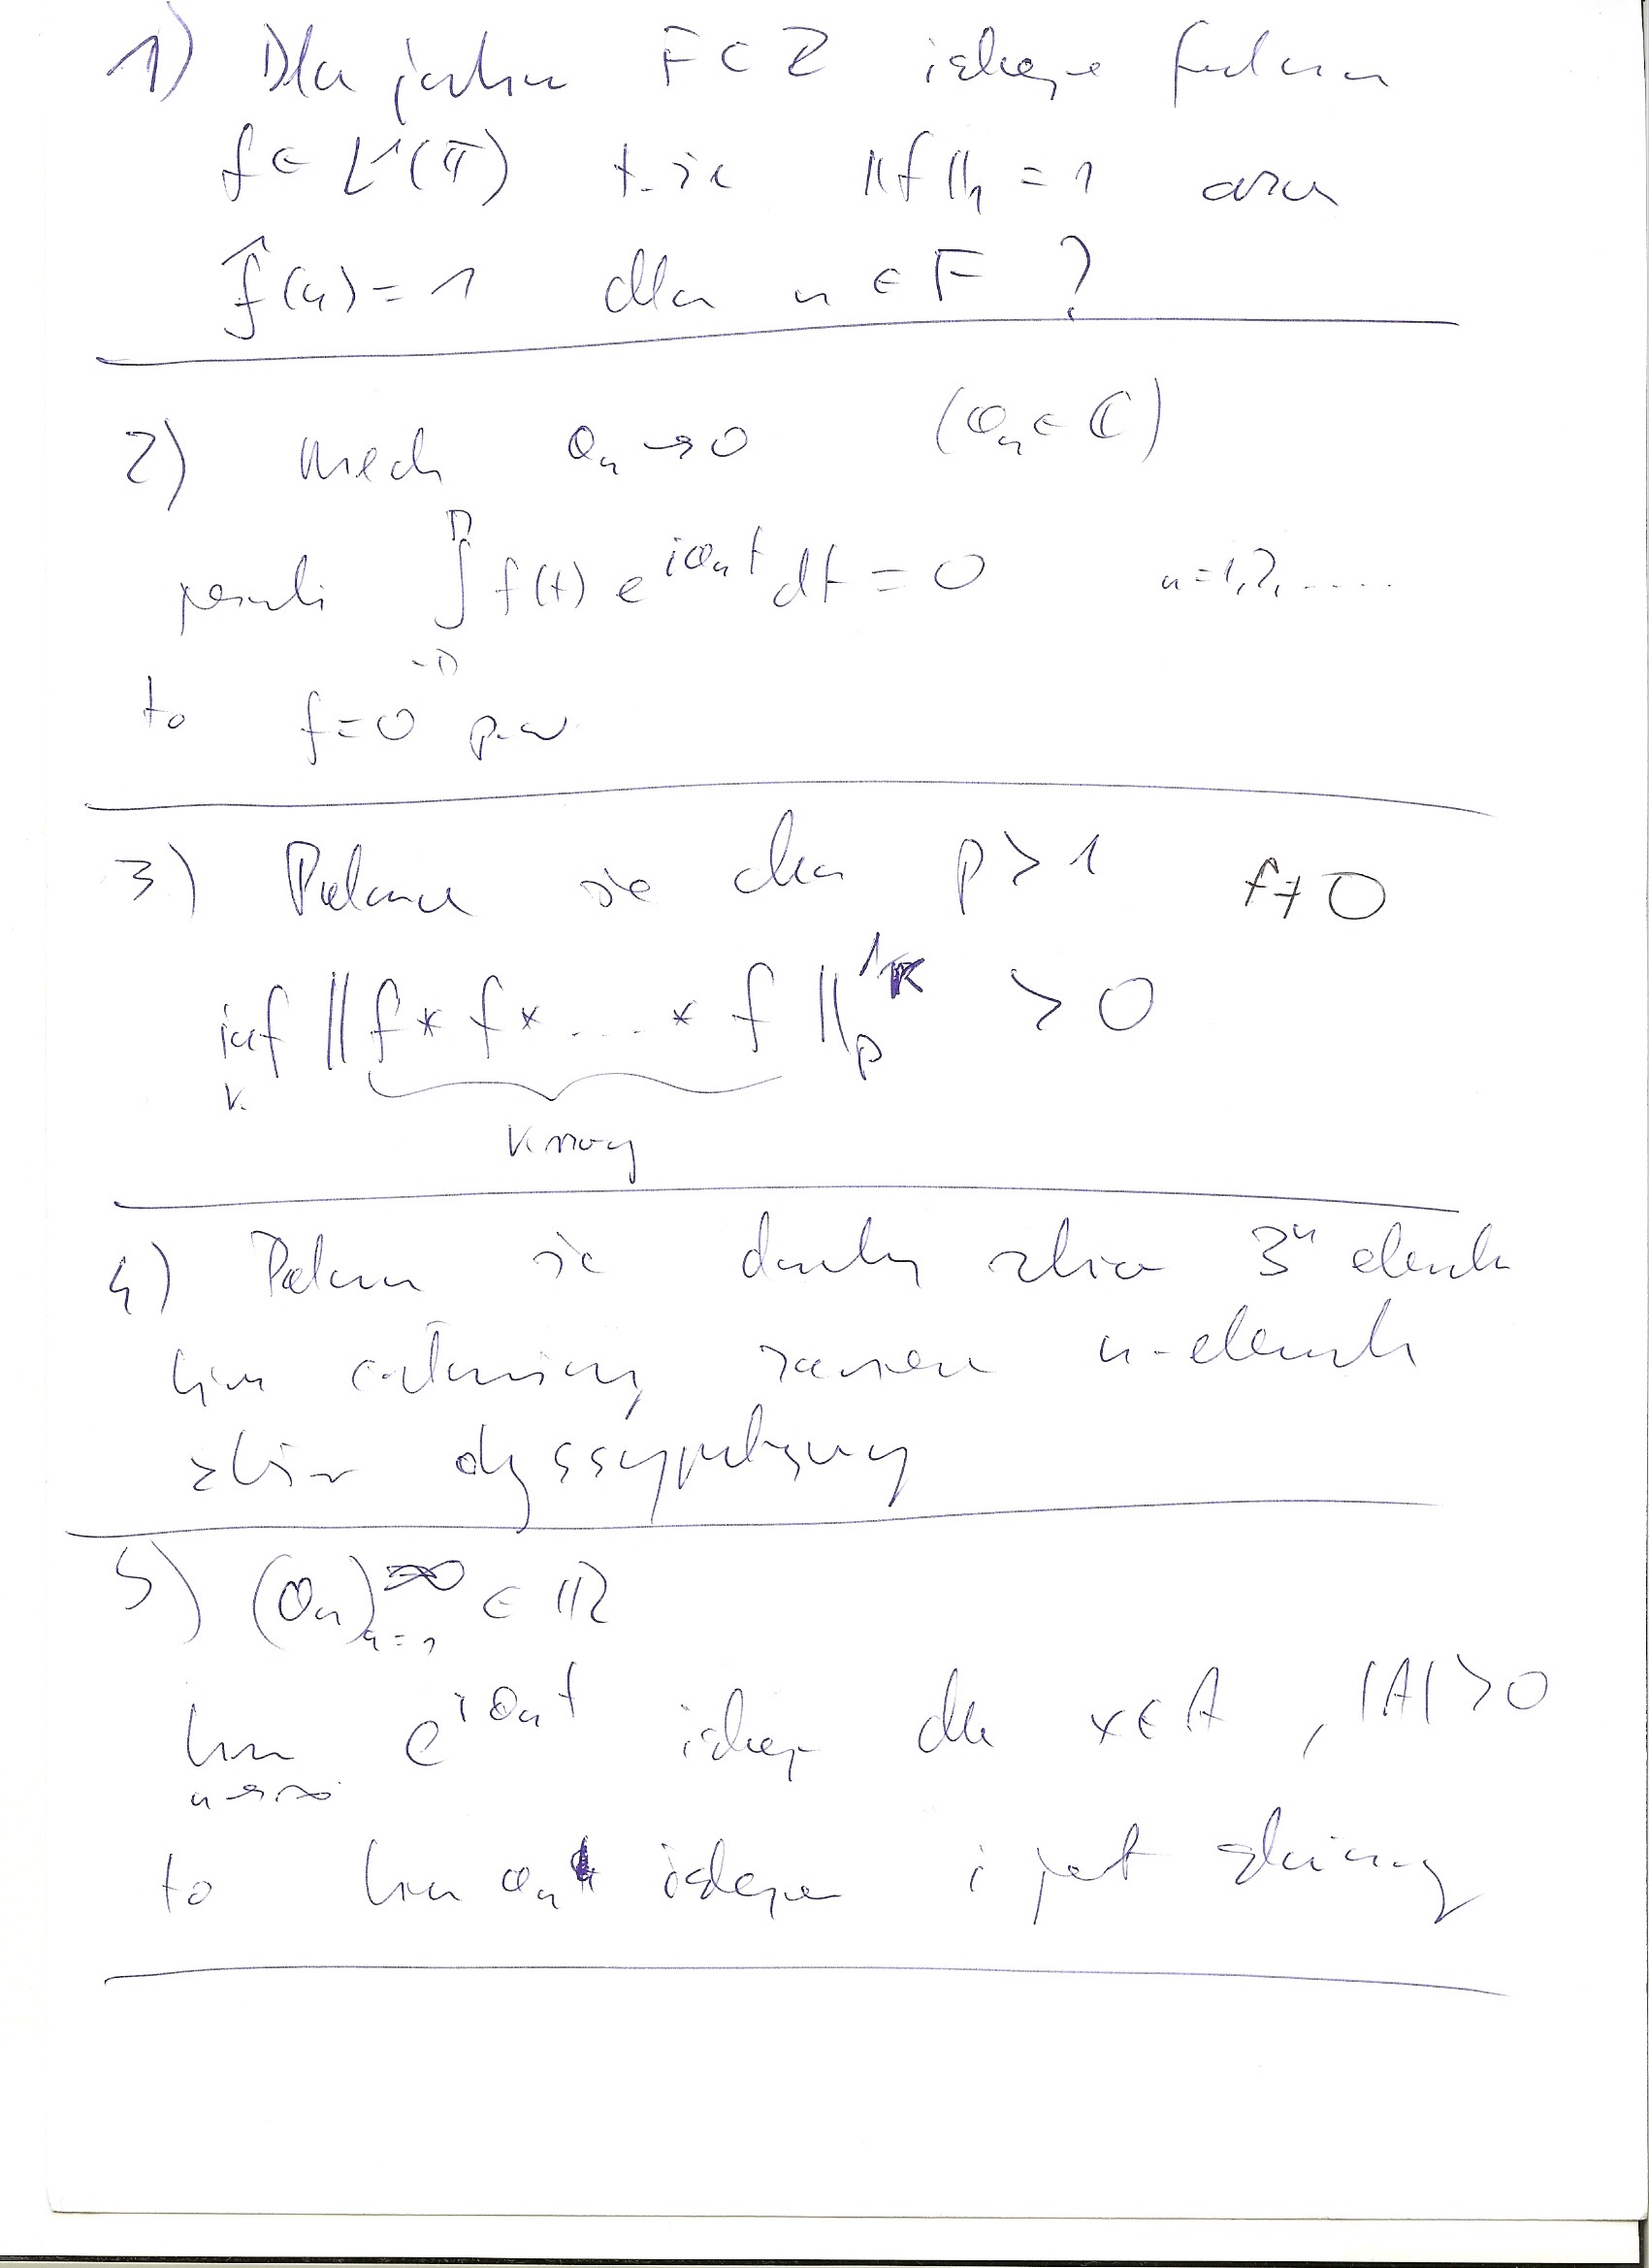 1) Dla jakich F ⊂ Z istnieje funkcja
f ∈ L¹(𝕋) t. że ||f||₁ = 1 oraz
f̂(n) = 1 dla n ∈ F ?
2) Niech aₙ → 0 (aₙ ∈ ℂ)
∫_{-π}^{π} f(t) e^{i aₙ t} dt = 0 n = 1, 2, .....
to f = 0 p.w
3) Pokazać że dla p > 1 f ≠ 0
inf_k || f * f * ... * f ||_p^{1/k} > 0
k razy
4) Pokazać że każdy zbiór 3ⁿ element
zawiera n-element
zbiór dyssypatywny
5) (aₙ)_{n=1}^∞ ∈ ℝ
lim_{n→∞} e^{i aₙ t} istnieje dla x ∈ A, |A| > 0
to lim aₙ istnieje i jest skończony